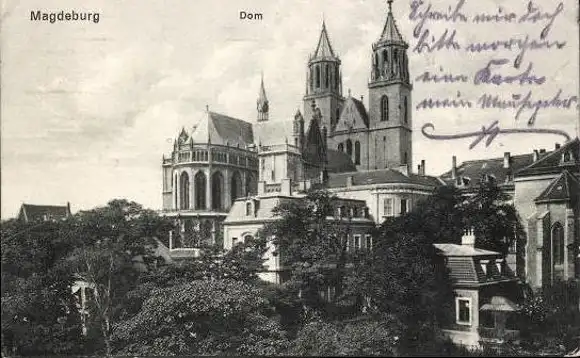 Magdeburg
Dom
Schreibe mir doch
bitte morgen
eine Karte
mein